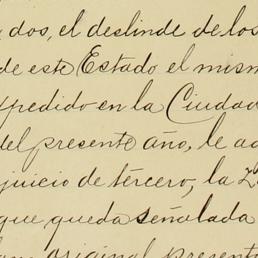 dos, el deslinde de los
de este Estado el mism
pedido en la Ciudad
del presente año, le a
juicio de tercero, la
que queda señalada
original presente